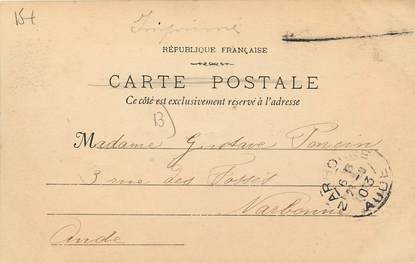 15+
Imprimé
RÉPUBLIQUE FRANÇAISE
CARTE POSTALE
Ce côté est exclusivement réservé à l'adresse
13
Madame Gustave Poncin
3 rue des Fossés
Narbonne
Aude
NARBO
AUDE
03